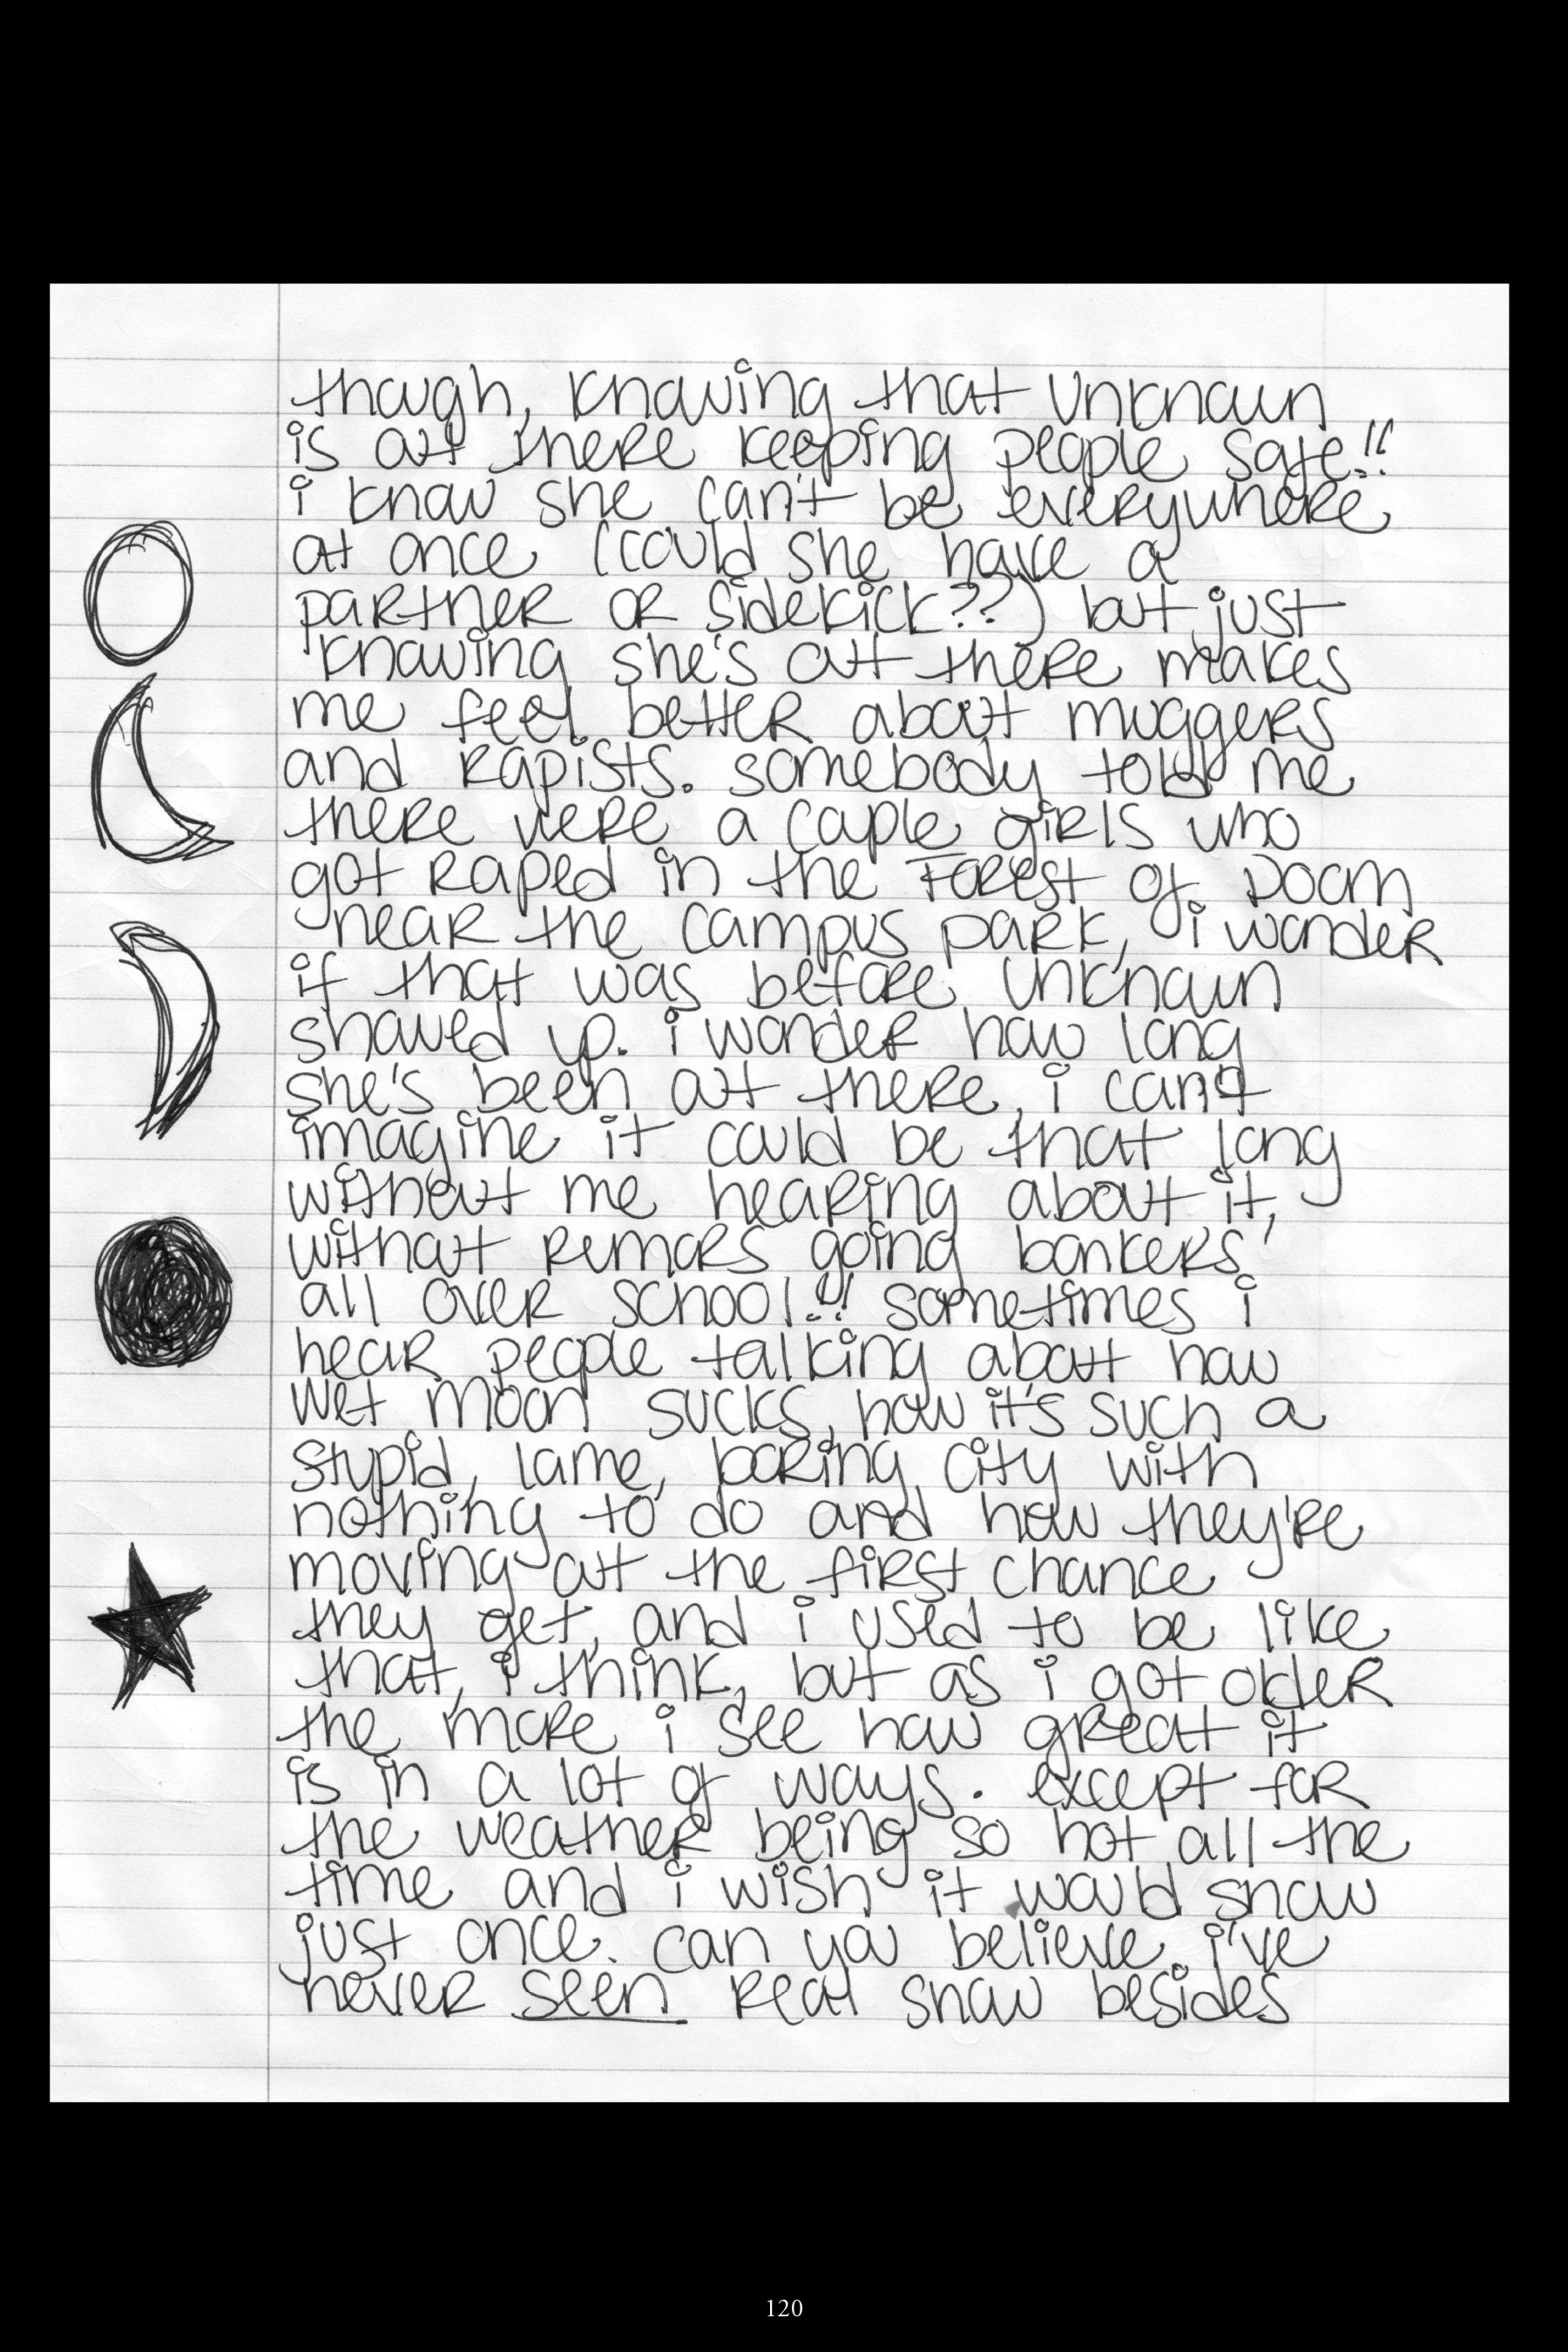 though, knowing that Unknown
is out there keeping people safe!!
i know she can't be everywhere
at once (could she have a
partner or sidekick??) but just
knowing she's out there makes
me feel better about muggers
and rapists. somebody told me
there were a couple girls who
got raped in the Forest of Doom
near the campus park, i wonder
if that was before Unknown
showed up. i wonder how long
she's been out there, i can't
imagine it could be that long
without me hearing about it,
without rumors going bonkers
all over school!! sometimes i
hear people talking about how
wet moon sucks, how it's such a
stupid, lame, boring city with
nothing to do and how they're
moving out the first chance
they get, and i used to be like
that, i think, but as i got older
the more i see how great it
is in a lot of ways. except for
the weather being so hot all the
time and i wish it would snow
just once. can you believe i've
never seen real snow besides
120